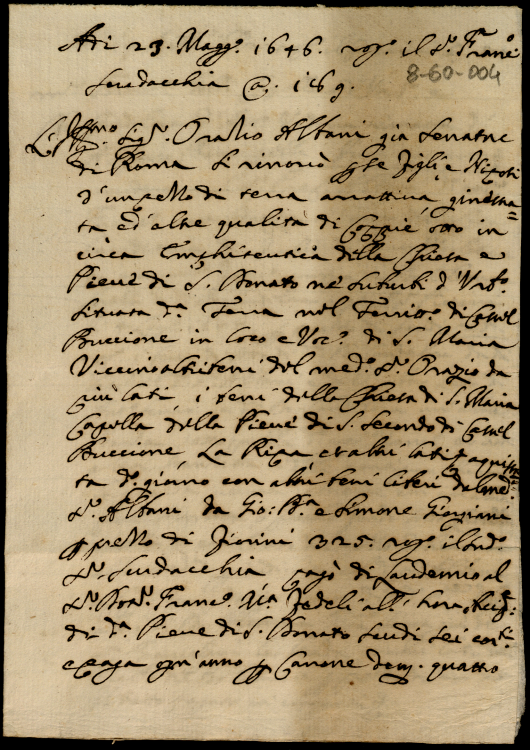 Adi 23. Magg.º 1646. rog.º il S.r Franc.º
8-60-004
Scudacchia @. 169.
L'Ill.mo Sig.r Orazio Albani già Senatore
di Roma si rinovò p se figli, e Nipoti
d'un pezzo di terra arrattiva ginestra=
ta ed'altre qualità di Coppie otto in
circa Emphiteutica della Chiesa e
Pieve di S. Donato ne suburbi d'Urb.º
situata d.a Terra nel Territ.º di Castel
Buccione in loco e Voc.º di S. Maria
Vicino altri beni del med.º S.r Orazio da
più lati, i beni della Chiesa di S. Maria
Capella della Pieve di S. Secondo di Castel
Buccione La Ripa et altri lati, aquista
ta d.º giorno con altri beni liberi dal med.º
S.r Albani da Gio: B.a e Simone Giorgiani
p prezzo di Fiorini 325. rog.º il Sud.º
S.r Scudacchia pagò di Laudemio al
S.r Don. Franc.º M.a Fedeli all'hora
di d.a Pieve di S. Donato scudi sei
e paga ogn'anno p Canone quattro